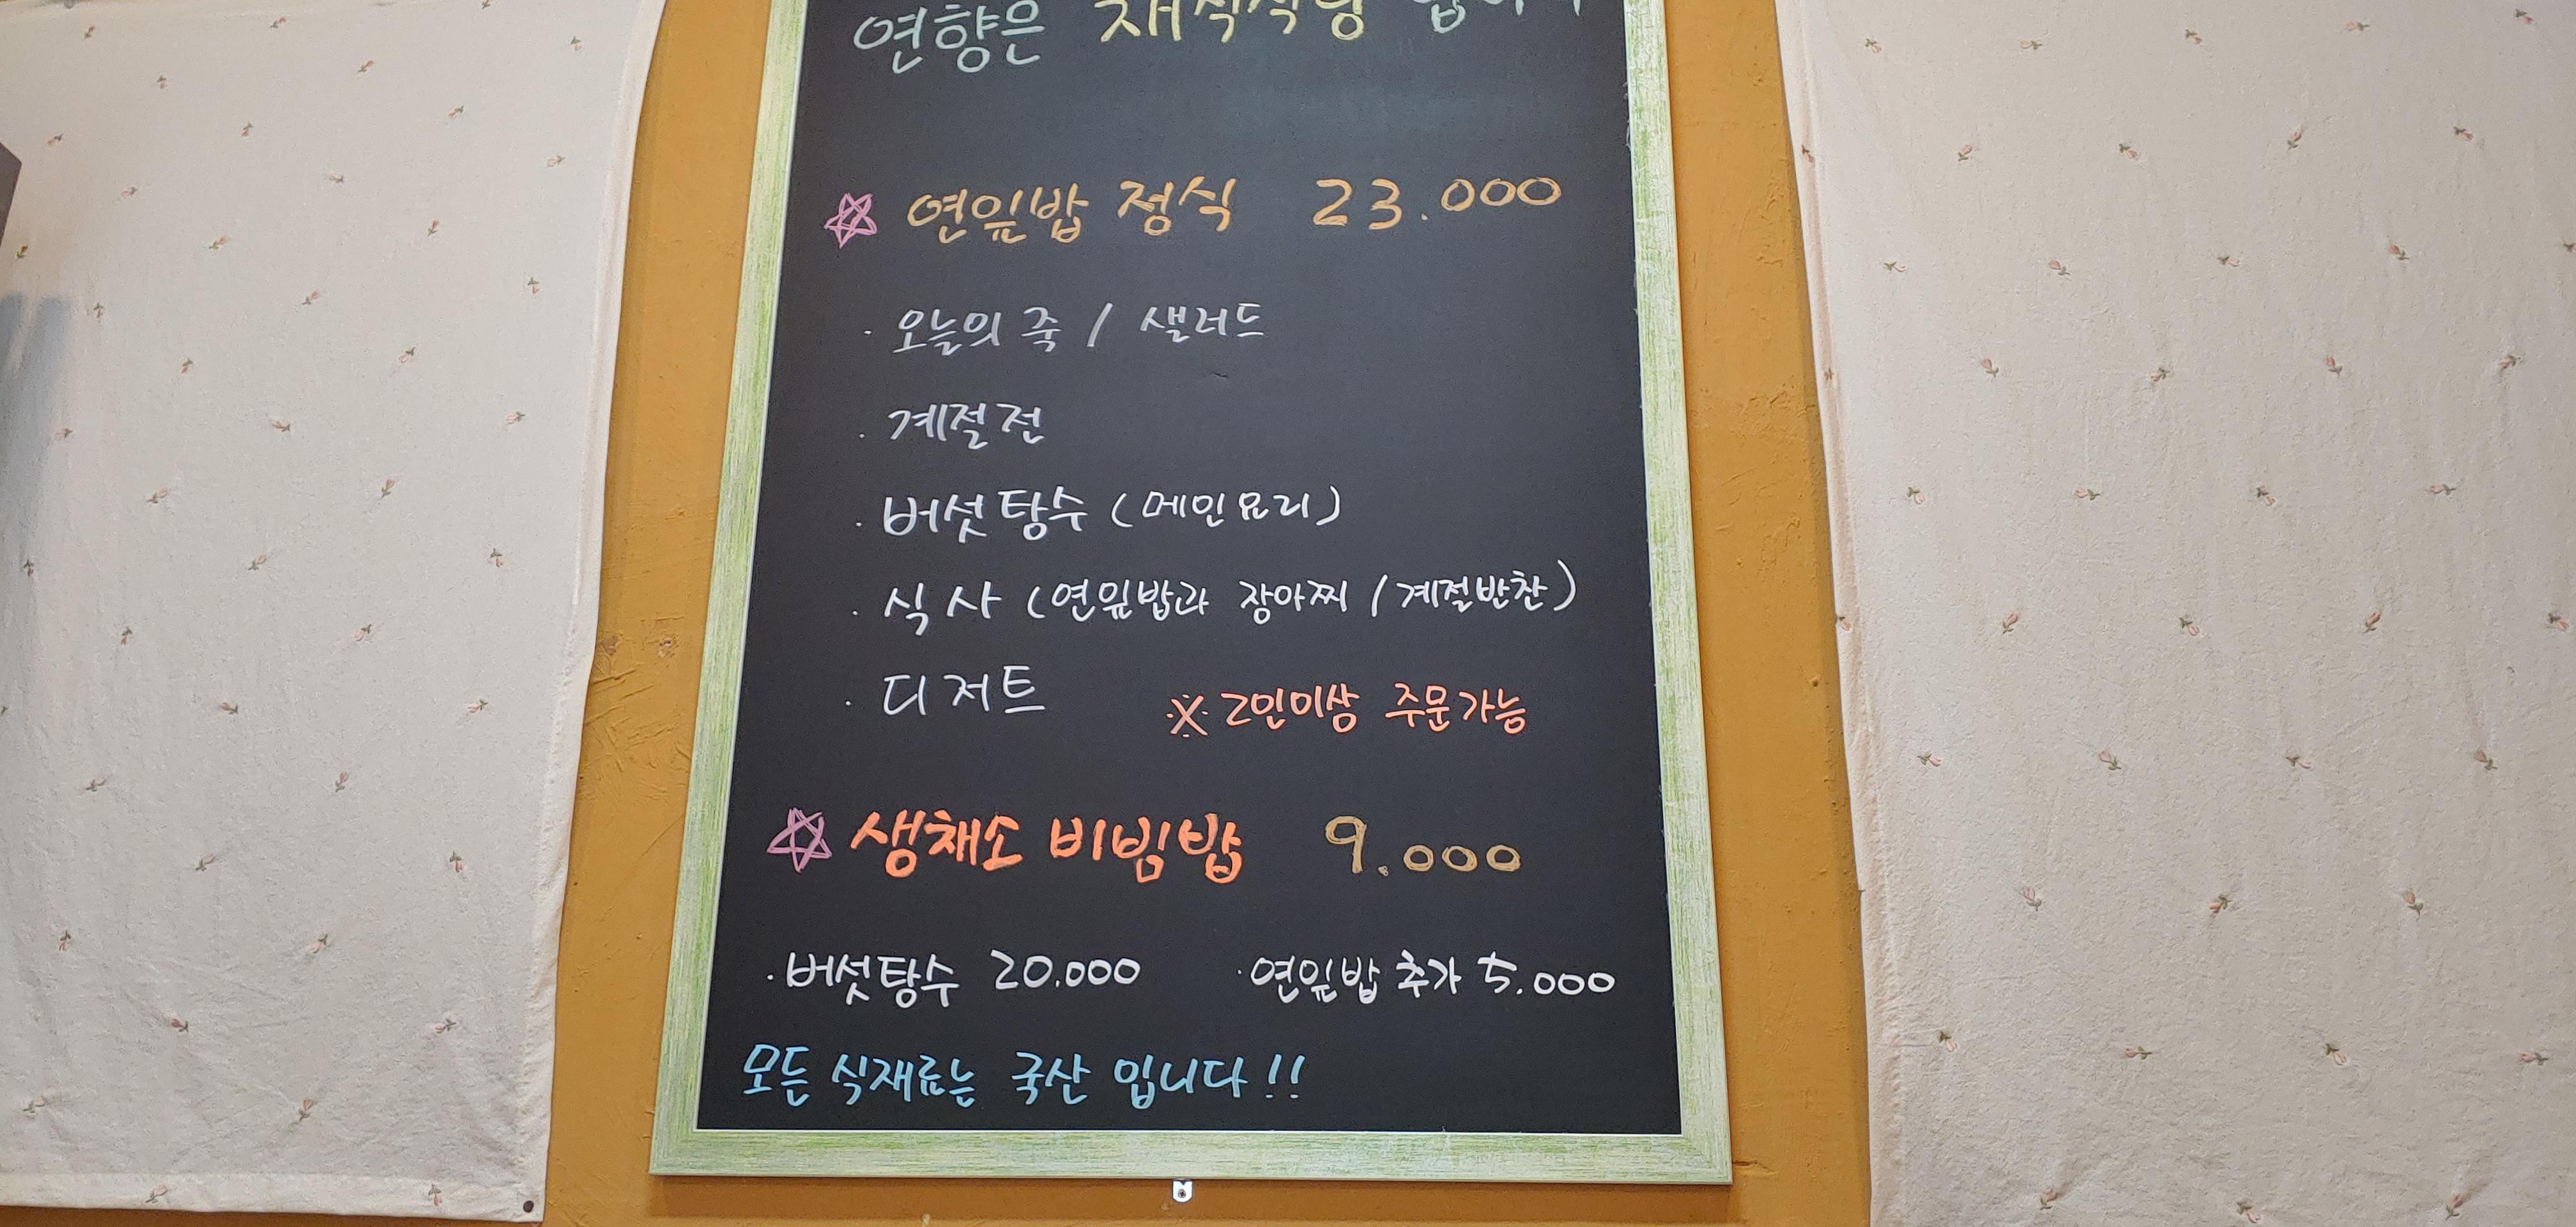 연향은 채식식당 입니다
☆ 연잎밥 정식 23.000
· 오늘의 죽 / 샐러드
· 계절전
· 버섯탕수 (메인요리)
· 식사 (연잎밥과 장아찌 / 계절반찬)
· 디저트 ※ 2인이상 주문가능
☆ 생채소 비빔밥 9.000
· 버섯탕수 20.000 · 연잎밥 추가 5.000
모든 식재료는 국산 입니다!!